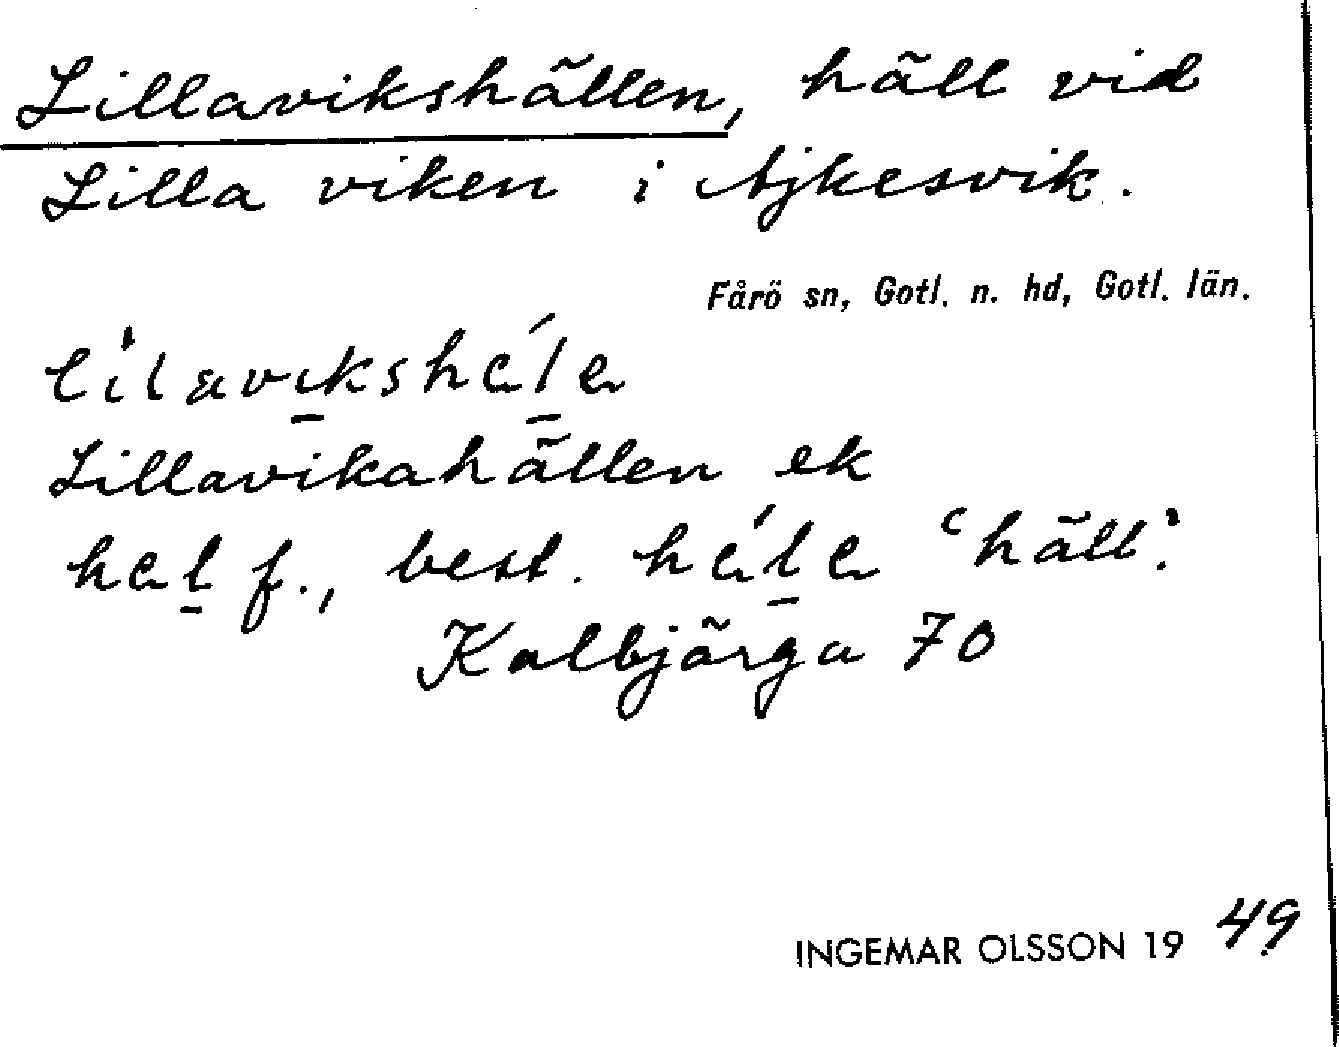 Lillavikshällen, häll vid
Lilla viken i Ajkesvik.
Fårö sn, Gotl. n. hd, Gotl. län.
Lillavikahällen ek
f., best. 'häll'.
Kalbjärga 70
INGEMAR OLSSON 19 49